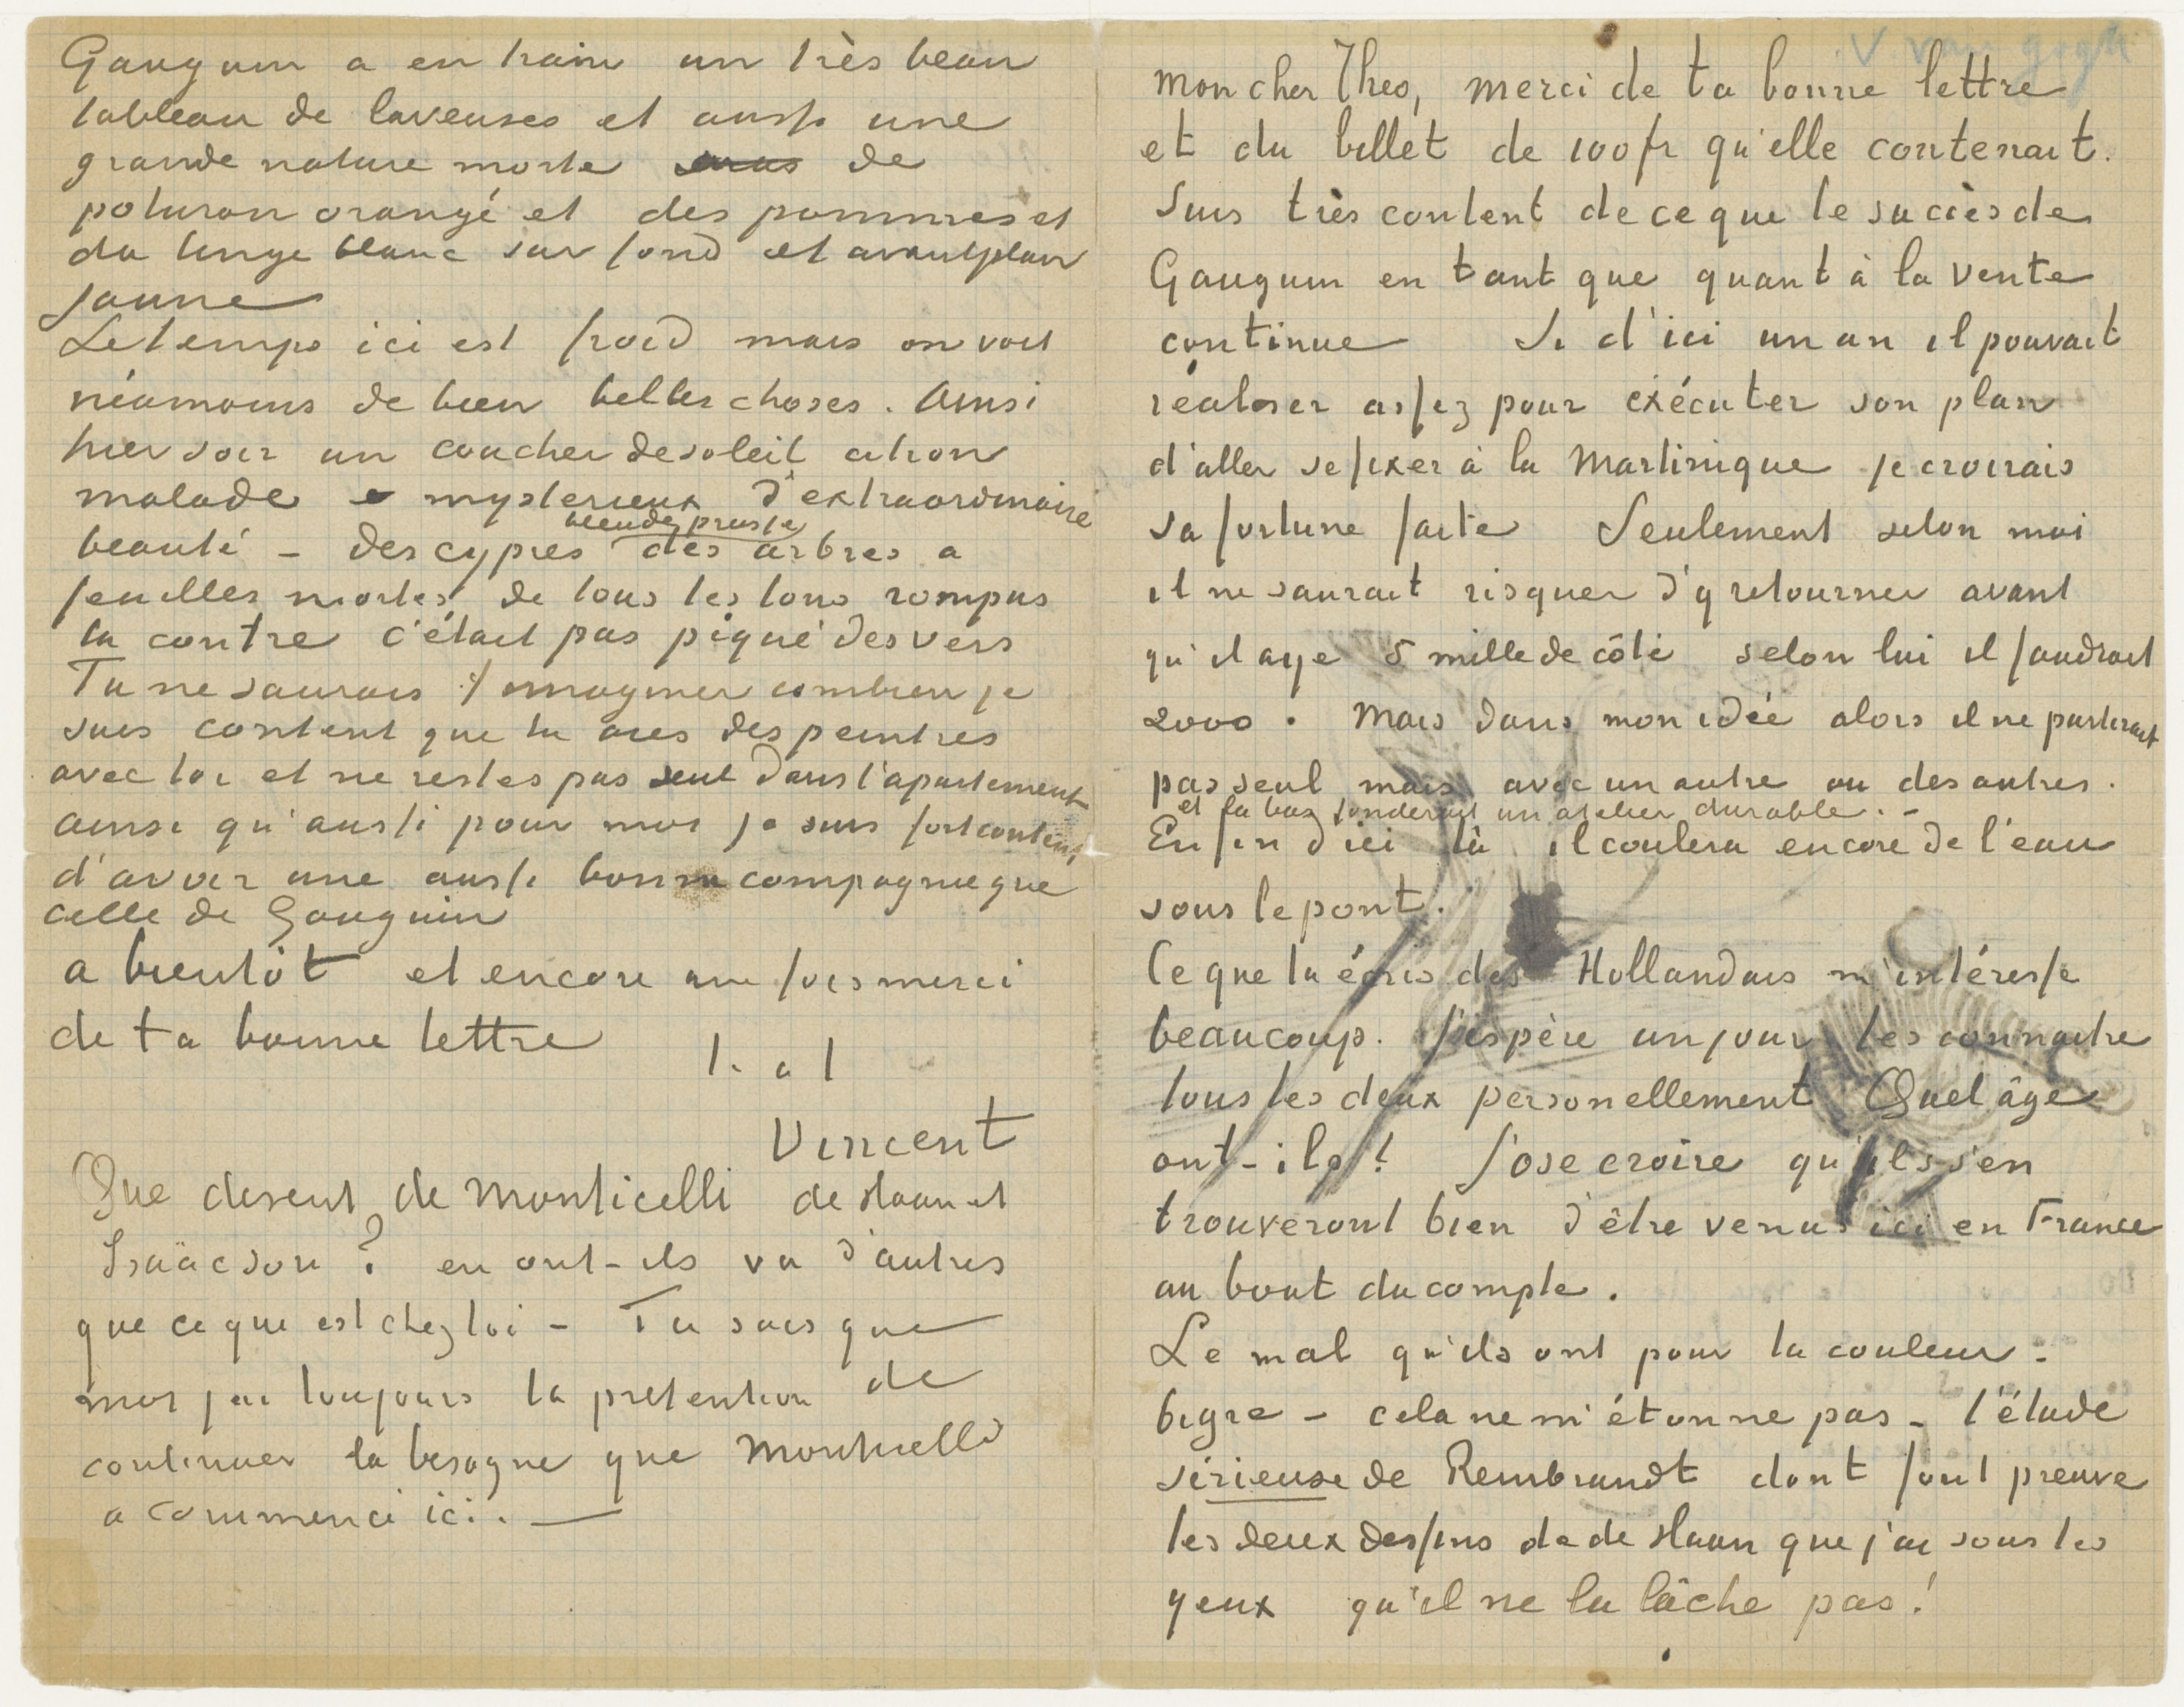 V. van gogh
mon cher Theo, merci de ta bonne lettre
et du billet de 100 fr qu'elle contenait.
Suis très content de ce que le succès de
Gauguin en tant que quant à la vente
continue Si d'ici un an il pouvait
réaliser assez pour exécuter son plan
d'aller se fixer à la Martinique je croirais
sa fortune faite Seulement selon moi
il ne saurait risquer d'y retourner avant
qu'il aye 5 mille de côté selon lui il faudrait
2000. Mais dans mon idée alors il ne partirait
pas seul mais avec un autre ou des autres.
et la bas fonderait un atelier durable. -
Enfin d'ici là il coulera encore de l'eau
sous le pont.
Ce que tu écris des Hollandais m'intéresse
beaucoup. J'espère un jour les connaitre
tous les deux personellement Quel âge
ont-ils? J'ose croire qu'ils s'en
trouveront bien d'être venus ici en France
au bout du compte.
Le mal qu'ils ont pour la couleur -
bigre - cela ne m'étonne pas - l'étude
sérieuse de Rembrandt dont font preuve
les deux dessins de de Haan que j'ai sous les
yeux qu'il ne la lâche pas!
Gauguin a en train un très beau
tableau de laveuses et aussi une
grande nature morte de
poturon orangé et des pommes et
du linge blanc sur fond et avantplan
jaune
Le temps ici est froid mais on voit
néamoins de bien belles choses. Ainsi
hier soir un coucher de soleil citron
malade mysterieux d'extraordinaire
bleu de prusse
beauté - des cypres des arbres a
feuilles mortes de tous les tons rompus
la contre c'était pas piqué des vers
Tu ne saurais t'imaginer combien je
suis content que tu aies des peintres
avec toi et ne restes pas seul dans l'apartement
ainsi qu'aussi pour moi je suis fort content
d'avoir une aussi bonne compagnie que
celle de Gauguin
a bientôt et encore une fois merci
de ta bonne lettre
t. à t
Vincent
Que disent de Monticelli de Haan et
Isaäcson? en ont-ils vu d'autres
que ce que est chez toi - Tu sais que
moi j'ai toujours la pretention de
continuer la besogne que Monticelli
a commencé ici. -